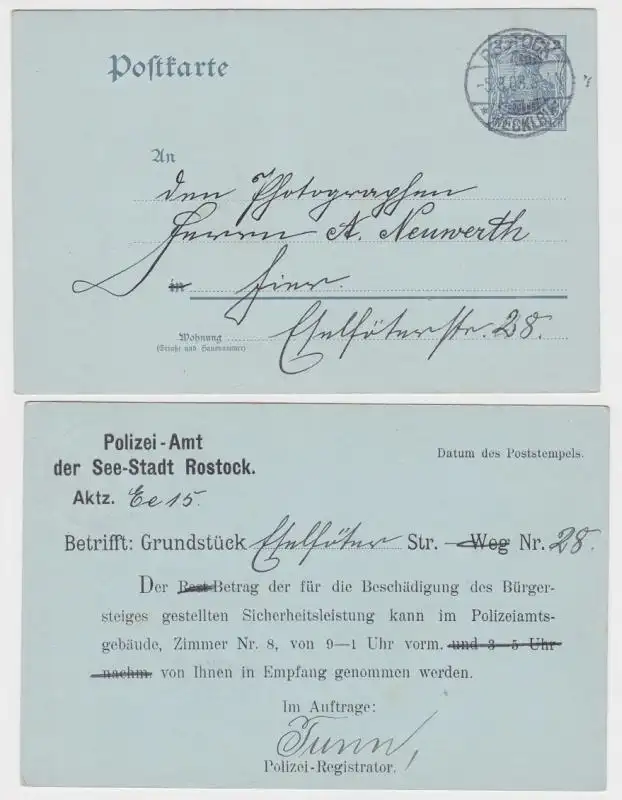 Postkarte
ROSTOCK
* MECKLB *
An
den Photographen
Herrn A. Neuwerth
in hier.
Wohnung Eselföterstr. 28.
(Straße und Hausnummer)
Polizei-Amt
der See-Stadt Rostock.
Datum des Poststempels.
Aktz. Ee 15.
Betrifft: Grundstück Eselföter Str. Weg Nr. 28.
Der Rest-Betrag der für die Beschädigung des Bürger-
steiges gestellten Sicherheitsleistung kann im Polizeiamts-
gebäude, Zimmer Nr. 8, von 9—1 Uhr vorm. und 3—5 Uhr
nachm. von Ihnen in Empfang genommen werden.
Im Auftrage:
Polizei-Registrator.